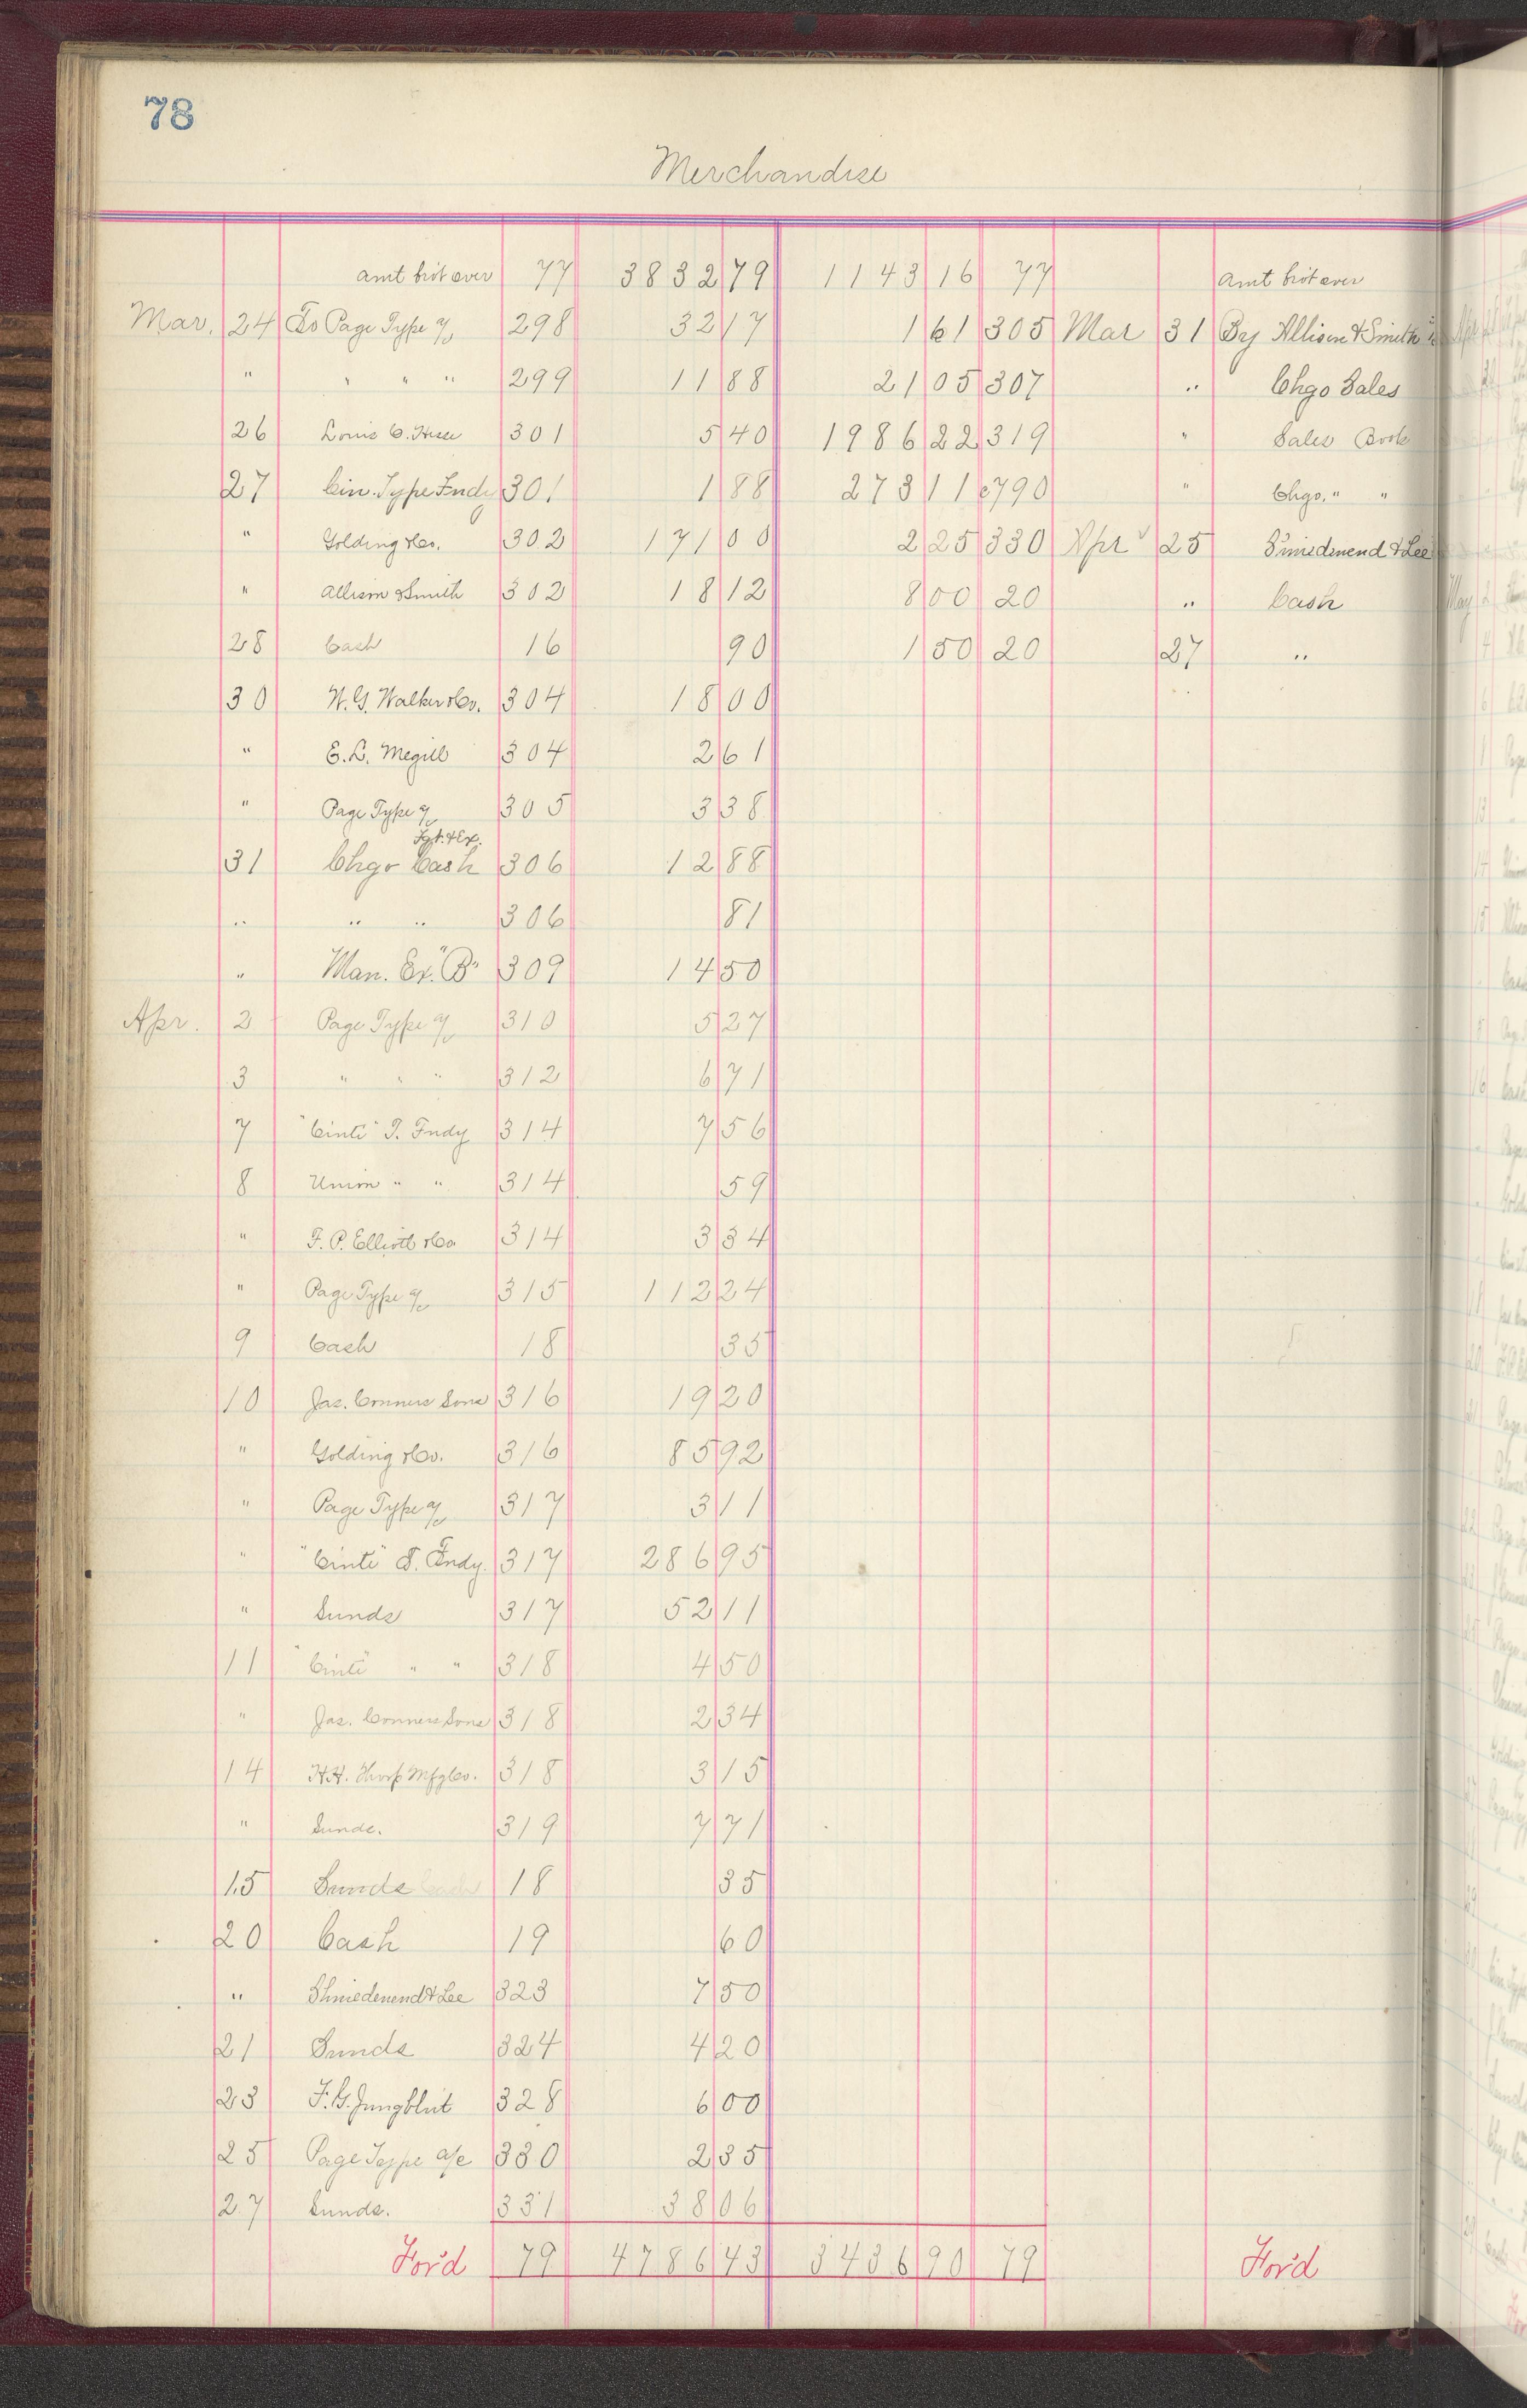 78
Merchandise
Amt bro't over 77 3832 79 1143 16 77 Amt bro't over
Mar. 24 To Page Type a/c 298 32 17 1 61 305 Mar 31 By Allison & Smith
" " " " 299 11 88 21 05 307 " Chgo Sales
26 Louis C. Hesse 301 5 40 1986 22 319 " Sales Book
27 Cin. Type Fndy 301 1 88 273 11 c790 " Chgo. " "
" Golding & Co. 302 171 00 2 25 330 Apr 25 Shniedenend & Lee
" Allison & Smith 302 18 12 8 00 20 " Cash
28 Cash 16 90 1 50 20 27 "
30 W. G. Walker & Co. 304 18 00
" E. L. Megill 304 2 61
" Page Type a/c 305 3 38
Fgt. & Ex.
31 Chgo Cash 306 12 88
" " " 306 81
" Man. Ex. "B" 309 14 50
Apr. 2 Page Type a/c 310 5 27
3 " " " 312 6 71
7 "Cinti" T. Fndy 314 7 56
8 Union " " 314 59
" F. P. Elliott & Co 314 3 34
" Page Type a/c 315 112 24
9 Cash 18 35
10 Jas. Conners Sons 316 19 20
" Golding & Co. 316 85 92
" Page Type a/c 317 3 11
" "Cinti" T. Fndy. 317 286 95
" Sunds 317 52 11
11 "Cinti" " " 318 4 50
" Jas. Conners Sons 318 2 34
14 H. H. Thorp Mfg Co. 318 3 15
" Sunds. 319 7 71
15 Sunds 18 35
20 Cash 19 60
" Shniedenend & Lee 323 7 50
21 Sunds 324 4 20
23 F. G. Jungblut 328 6 00
25 Page Type a/c 330 2 35
27 Sunds. 331 38 06
For'd 79 4786 43 3436 90 79 For'd